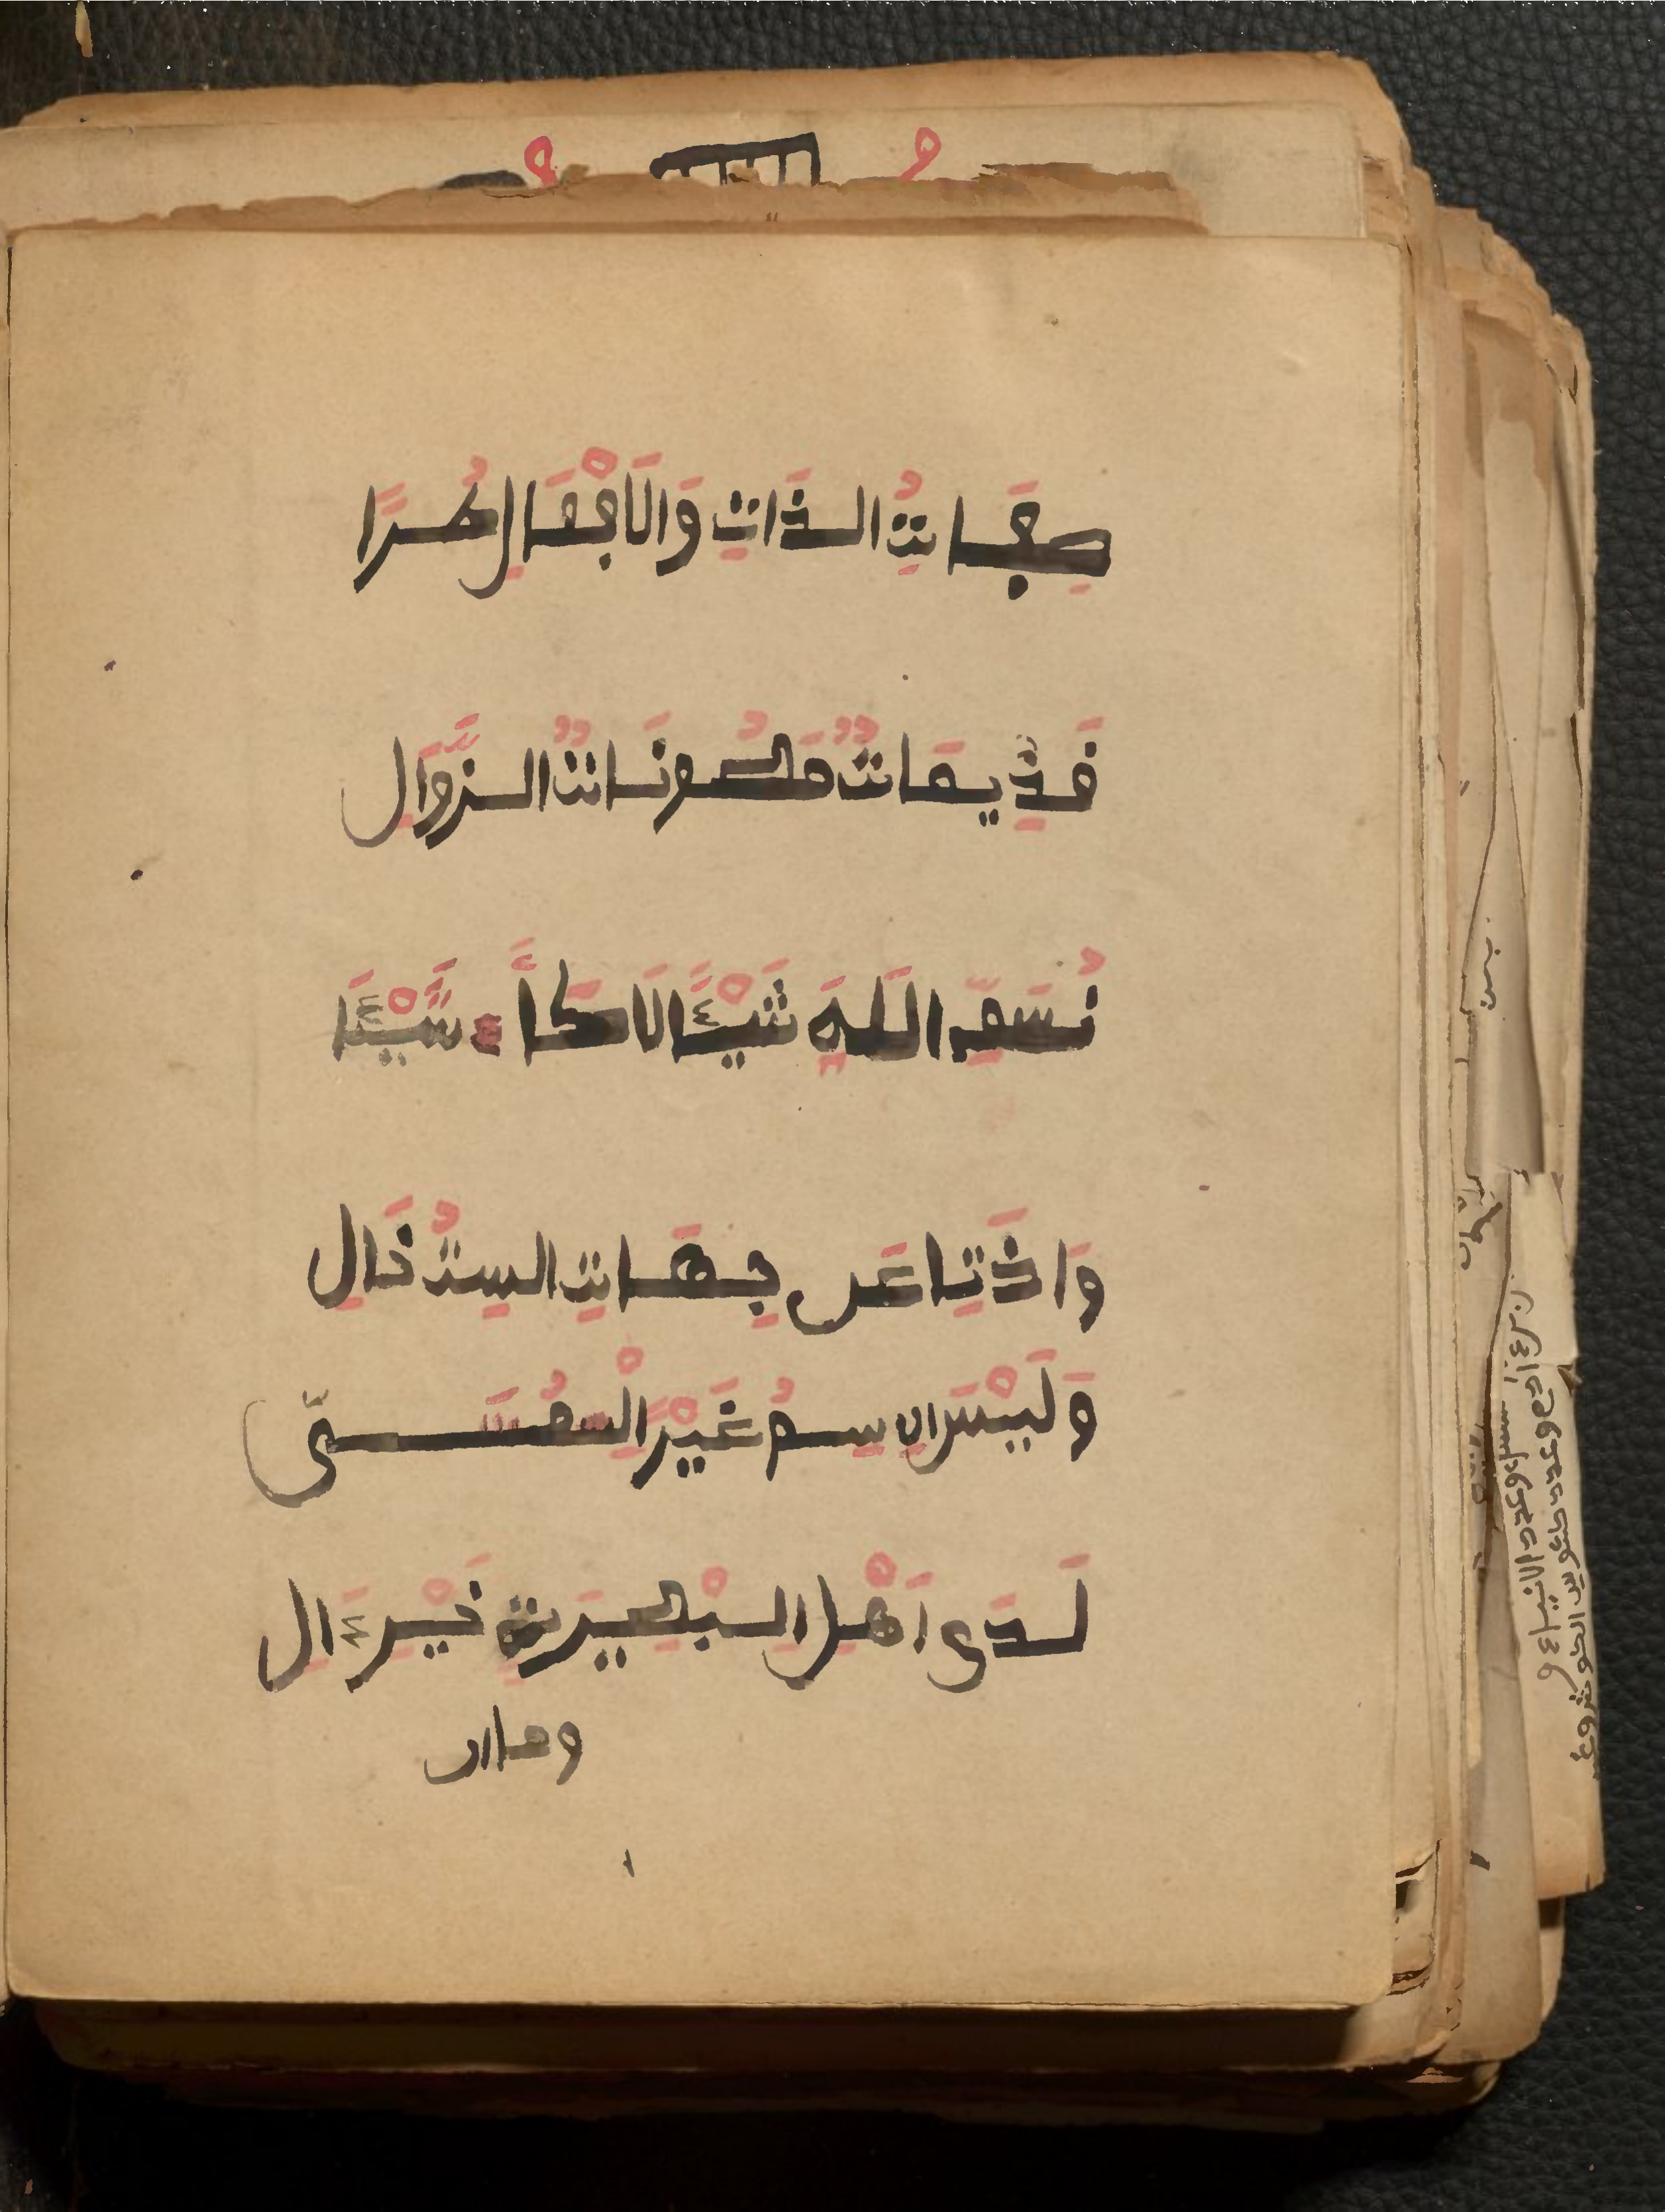 صِفَاتُ الذَّاتِ وَالَافْعَالِ طُرًا
قَدِيمَاتٌ مَصُونَاتُ الزَّوَالِ
نُسَمِّ اللهَ شَيْئًا لَا كَأَ شْيَّئًا
وَاذَتًا عَن جِهَاتِ السِتُ خَالِ
وَلَيْسَ الِاسِمُ غَيْرًا لْمُسَمَّى
لَدَى اَهْلِ البْصِيرَتِ خَيْرَ ءَالِ
وما ان